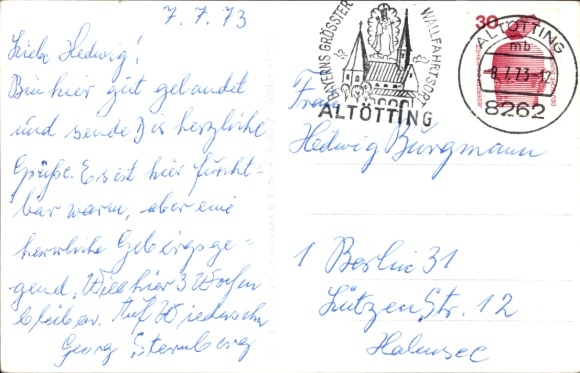 7.7.73
Liebe Hedwig!
Bin hier gut gelandet
und sende Dir herzliche
Grüße. Es ist hier furcht-
bar warm, aber eine
herrliche Gebirgsge-
gend. Will hier 3 Wochen
bleiben. Auf Wiedersehn
Georg Sternberg
BAYERNS GRÖSSTER WALLFAHRTSORT
ALTÖTTING
30
ALTÖTTING
mb
-8.7.73-17
8262
Frau
Hedwig Burgmann
1 Berlin 31
Lützenstr. 12
Halensee